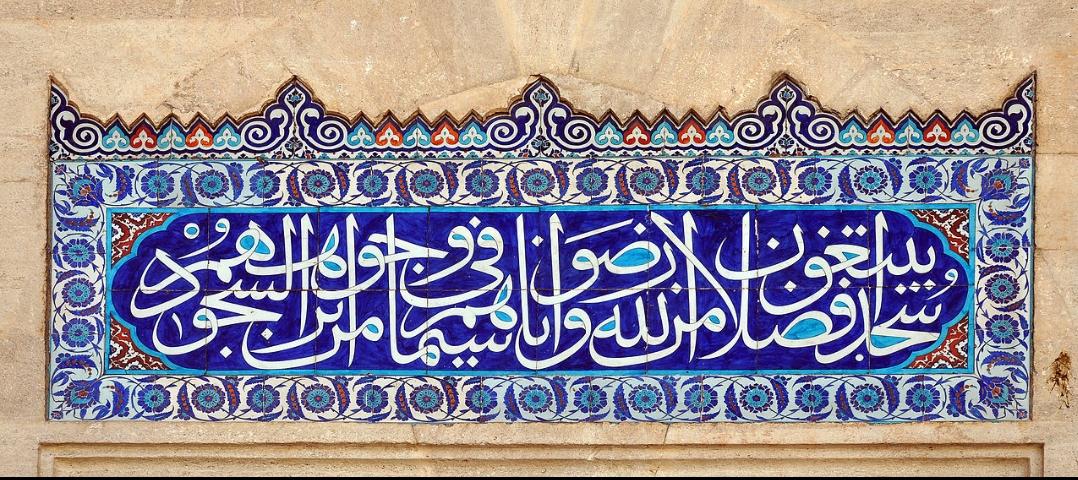 سُجّدا يبتغون فضلا من الله ورضوانا سيماهم فى وجوههم من اثر السجود